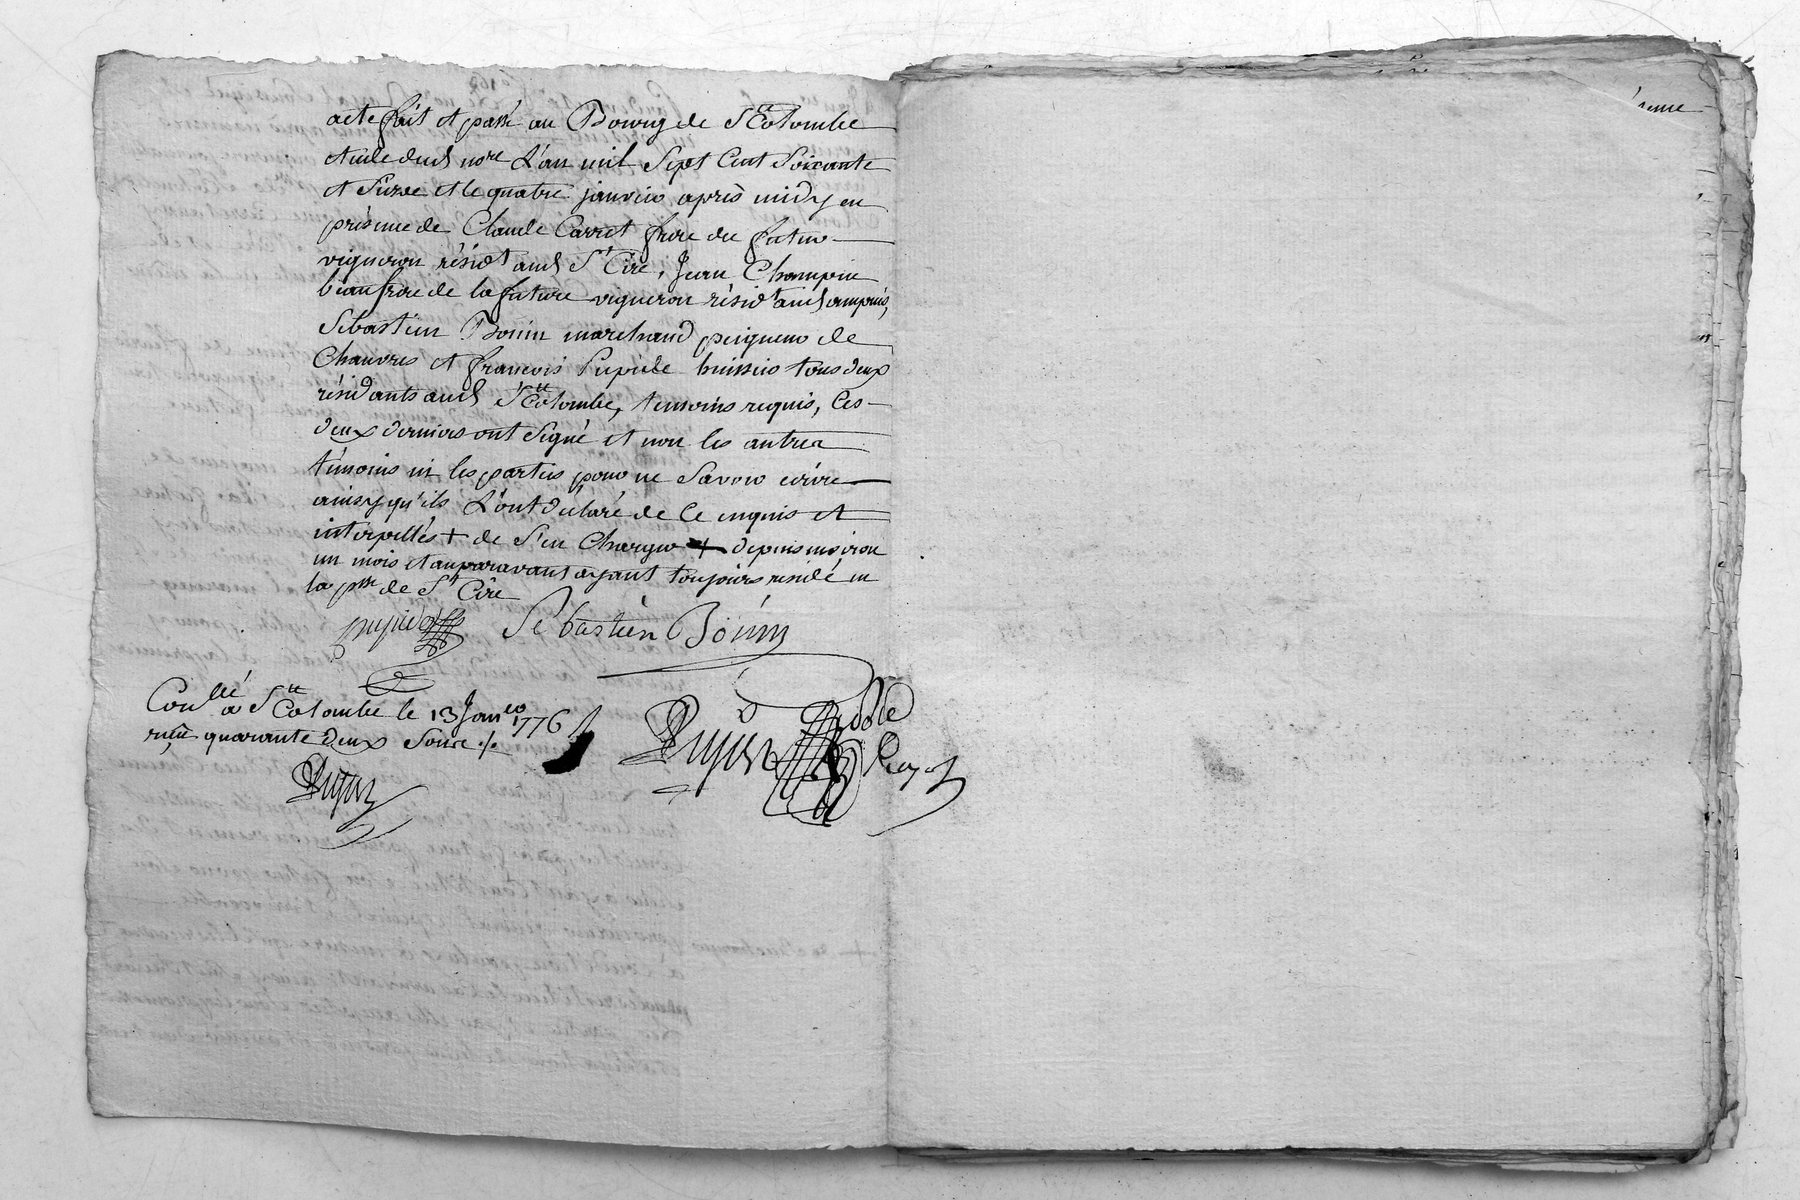 acte fait et passé au Bourg de Ste Colombe
étude dud nore L'an mil Sept Cent Soixante
et Sieze et le quatre janvier après midy en
présence de Claude Carret frere du futur
vigneron résidt aud St Cire, Jean Champin
beaufrere de la future vigneron résidt aud ampuis,
Sébastien Bonin marchand peigneur de
Chanvres et francois Pupide huissier tous deux
résidants aud Ste Colombe, temoins requis, Ces
deux derniers ont Signé et non les autres
témoins ni les parties pour ne Savoir écrire
ainsy qu'ils L'ont déclaré de Ce enquis et
interpellés + de S'en Charger + depuis environ
un mois et auparavant ayant toujours residé en
la psse de St Cire
Sébastièn Bónin
Conllé a Ste Colombe le 13 Janer 1776
reçu quarante deux Sous ./.